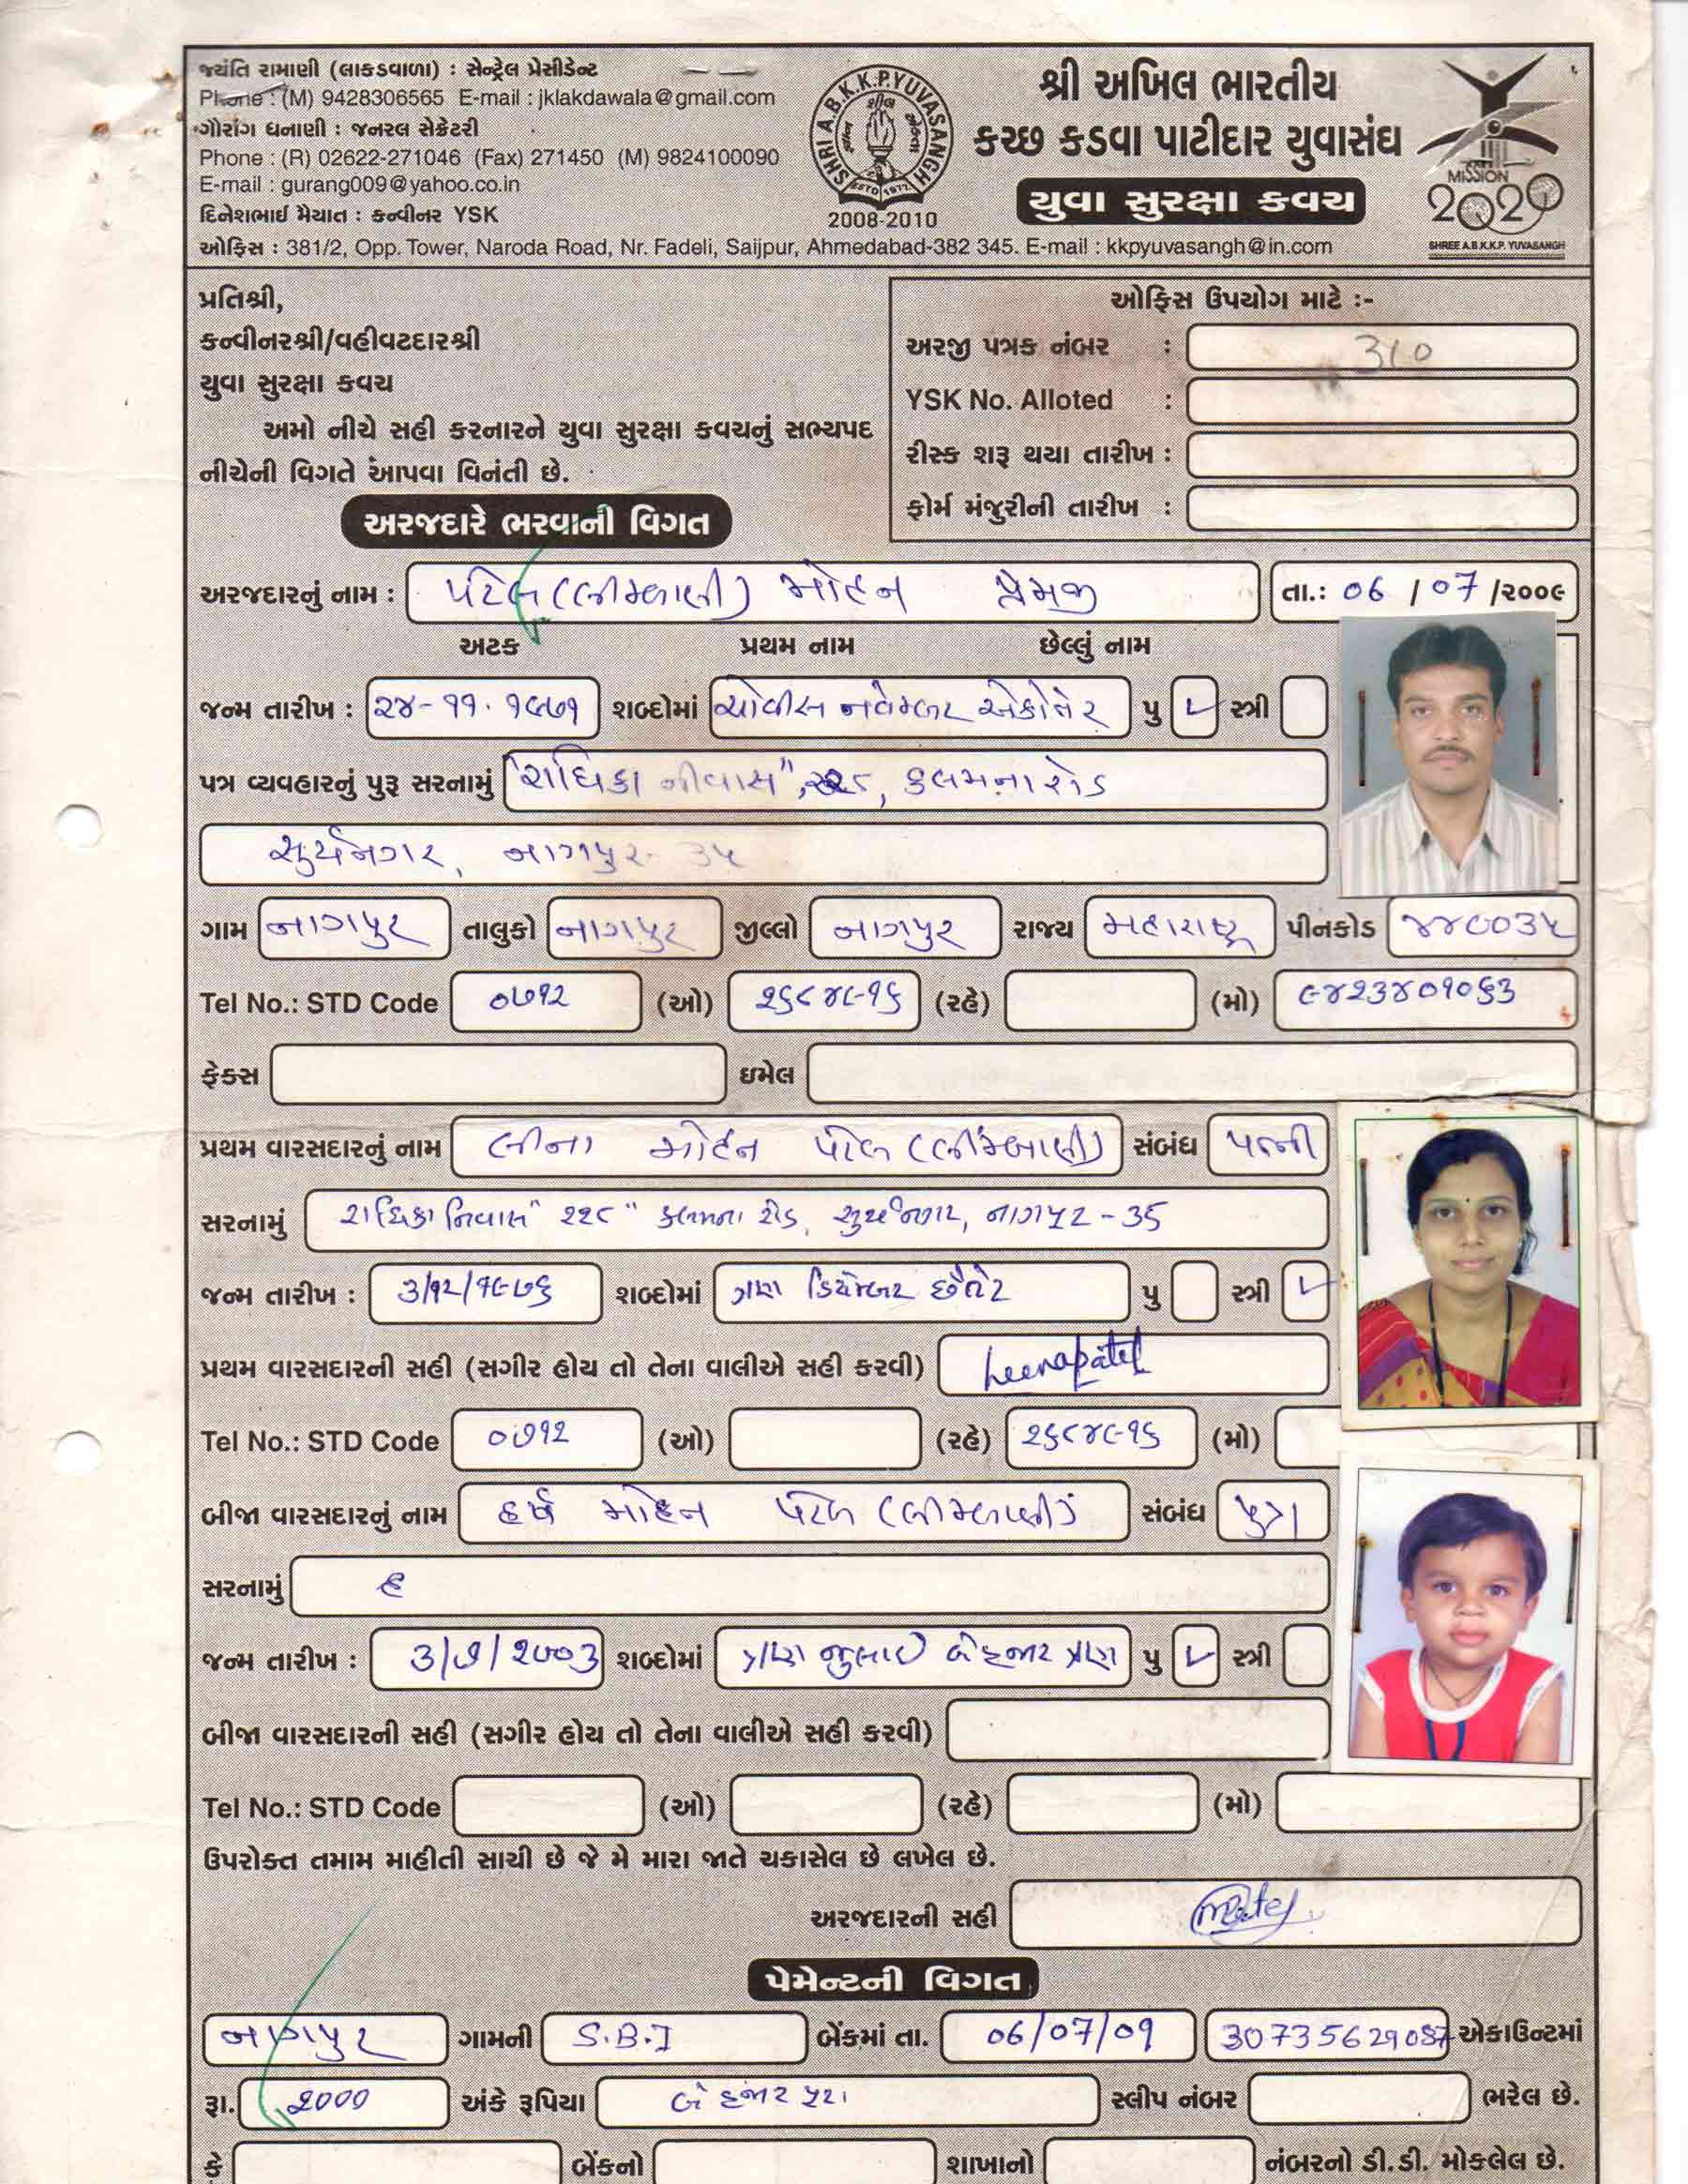 જયંતિ રામાણી (લાકડવાળા) : સેન્ટ્રેલ પ્રેસીડેન્ટ
Phone : (M) 9428306565 E-mail : jklakdawala@gmail.com
ગૌરાંગ ધનાણી : જનરલ સેક્રેટરી
Phone : (R) 02622-271046 (Fax) 271450 (M) 9824100090
E-mail : gurang009@yahoo.co.in
દિનેશભાઈ મૈયાત : કન્વીનર YSK
ઓફિસ : 381/2, Opp. Tower, Naroda Road, Nr. Fadeli, Saijpur, Ahmedabad-382 345. E-mail : kkpyuvasangh@in.com
SHRI A.B.K.K.P. YUVASANGH
ESTD 1977
2008-2010
શ્રી અખિલ ભારતીય
કચ્છ કડવા પાટીદાર યુવાસંઘ
યુવા સુરક્ષા કવચ
MISSION
2020
SHREE A.B.K.K.P. YUVASANGH
પ્રતિશ્રી,
કન્વીનરશ્રી/વહીવટદારશ્રી
યુવા સુરક્ષા કવચ
અમો નીચે સહી કરનારને યુવા સુરક્ષા કવચનું સભ્યપદ
નીચેની વિગતે આપવા વિનંતી છે.
ઓફિસ ઉપયોગ માટે :-
અરજી પત્રક નંબર : 310
YSK No. Alloted :
રીસ્ક શરૂ થયા તારીખ :
ફોર્મ મંજુરીની તારીખ :
અરજદારે ભરવાની વિગત
અરજદારનું નામ : પટેલ (લીમ્બાણી) મોહન પ્રેમજી તા.: 06 / 07 /૨૦૦૯
અટક પ્રથમ નામ છેલ્લું નામ
જન્મ તારીખ : ૨૪-૧૧-૧૯૭૧ શબ્દોમાં ચોવીસ નવેમ્બર એકોતેર પુ ✓ સ્ત્રી
પત્ર વ્યવહારનું પુરૂ સરનામું "રાધિકા નીવાસ", ૨૨૮, કલમના રોડ
સુર્યનગર, નાગપુર- ૩૫
ગામ નાગપુર તાલુકો નાગપુર જીલ્લો નાગપુર રાજ્ય મહારાષ્ટ્ર પીનકોડ ૪૪૦૦૩૫
Tel No.: STD Code ૦૭૧૨ (ઓ) ૨૬૮૪૯૧૬ (રહે) (મો) ૯૪૨૩૪૦૧૦૬૩
ફેક્સ ઇમેલ
પ્રથમ વારસદારનું નામ લીના મોહન પટેલ (લીમ્બાણી) સંબંધ પત્ની
સરનામું રાધિકા નિવાસ" ૨૨૮" કલમના રોડ, સુર્યનગર, નાગપુર - ૩૫
જન્મ તારીખ : ૩/૧૨/૧૯૭૬ શબ્દોમાં ત્રણ ડિસેમ્બર છોતેર પુ સ્ત્રી ✓
પ્રથમ વારસદારની સહી (સગીર હોય તો તેના વાલીએ સહી કરવી) Leenapatel
Tel No.: STD Code ૦૭૧૨ (ઓ) (રહે) ૨૬૮૪૯૧૬ (મો)
બીજા વારસદારનું નામ હર્ષ મોહન પટેલ (લીમ્બાણી) સંબંધ પુત્ર
સરનામું
જન્મ તારીખ : ૩/૭/૨૦૦૩ શબ્દોમાં ત્રણ જુલાઇ બે હજાર ત્રણ પુ ✓ સ્ત્રી
બીજા વારસદારની સહી (સગીર હોય તો તેના વાલીએ સહી કરવી)
Tel No.: STD Code (ઓ) (રહે) (મો)
ઉપરોક્ત તમામ માહીતી સાચી છે જે મે મારા જાતે ચકાસેલ છે લખેલ છે.
અરજદારની સહી
પેમેન્ટની વિગત
નાગપુર ગામની S.B.I બેંકમાં તા. 06/07/09 30735629087 એકાઉન્ટમાં
રૂા. 2000 અંકે રૂપિયા બે હજાર પુરા સ્લીપ નંબર ભરેલ છે.
કે બેંકનો શાખાનો નંબરનો ડી.ડી. મોકલેલ છે.